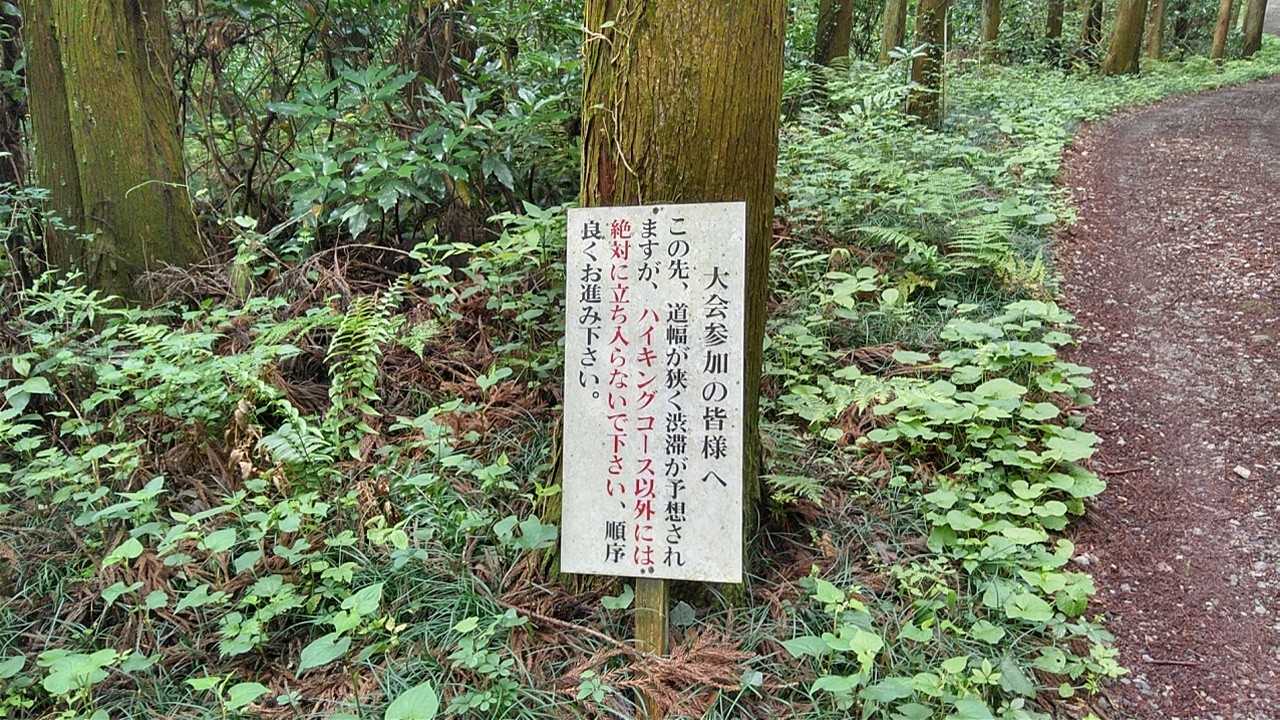 大会参加の皆様へ
この先、道幅が狭く渋滞が予想され
ますが、ハイキングコース以外には
絶対に立ち入らないで下さい、順序
良くお進み下さい。